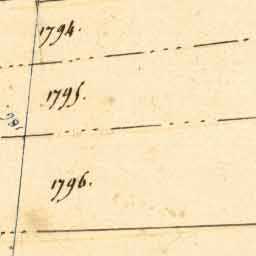 1794.
1795.
1796.